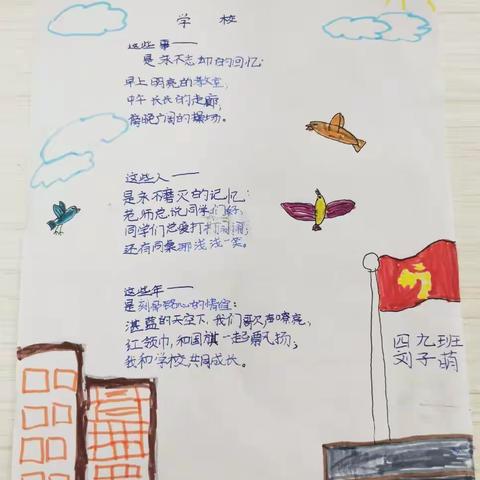 学校
这些事——
是永不忘却的回忆:
早上明亮的教室,
中午长长的走廊,
傍晚广阔的操场。
这些人——
是永不磨灭的记忆:
老师总说同学们好,
同学们总爱打打闹闹,
还有同桌那浅浅一笑。
这些年——
是刻骨铭心的情谊:
湛蓝的天空下,我们歌声嘹亮,
红领巾,和国旗一起飘扬,
我和学校共同成长。
四九班
刘子萌